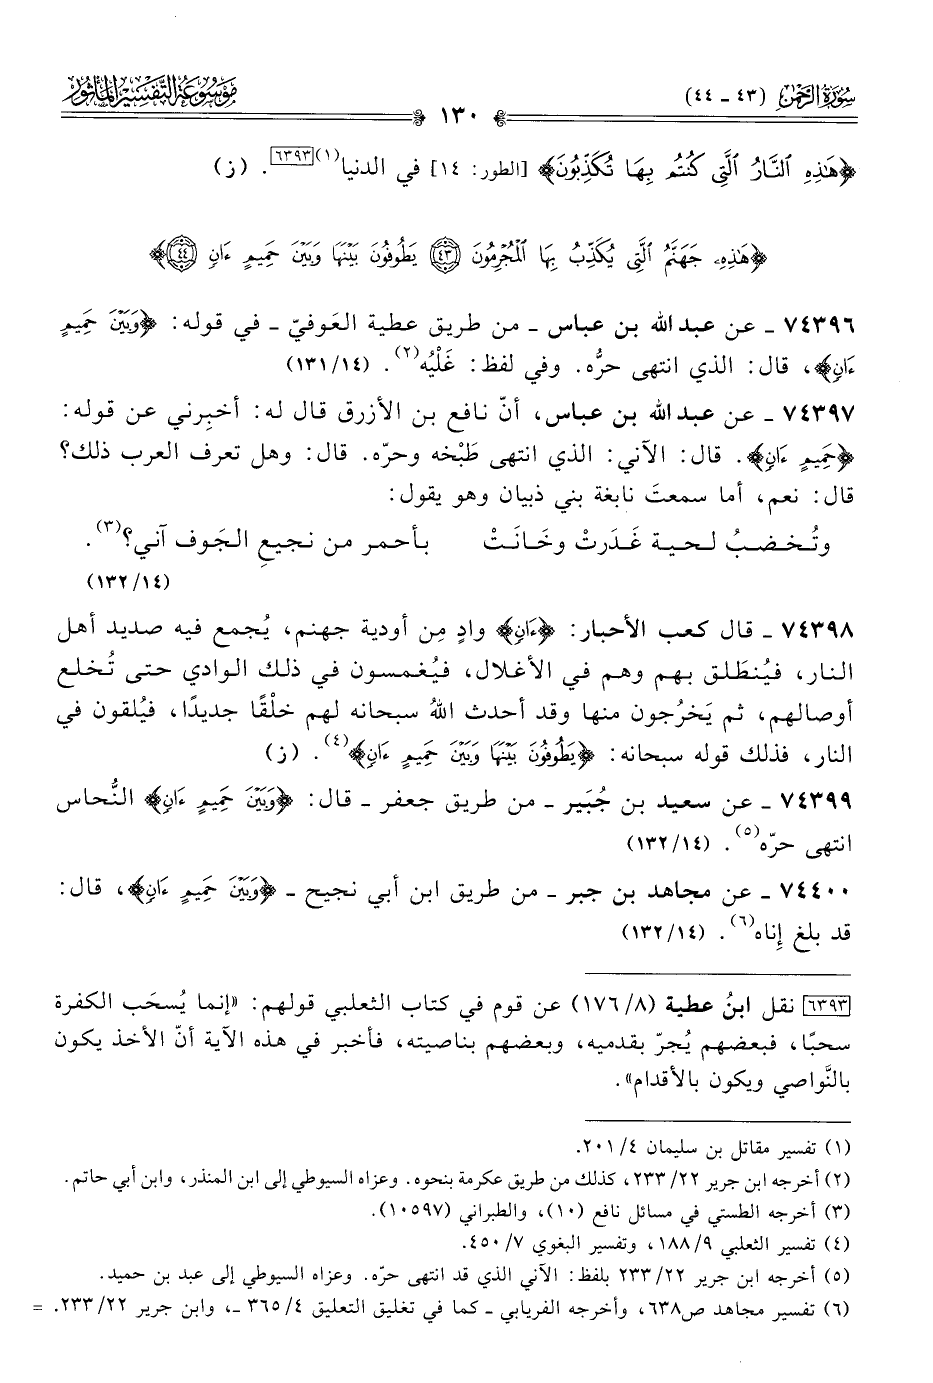 سُورَةُ الرَّحْمٰن (٤٣ - ٤٤)
١٣٠
مَوْسُوعَةُ التَّفْسِيرِ المَأْثُورِ
﴿هَٰذِهِ ٱلنَّارُ ٱلَّتِي كُنتُم بِهَا تُكَذِّبُونَ﴾ [الطور: ١٤] في الدنيا(١)[٦٣٩٣]. (ز)
﴿هَٰذِهِۦ جَهَنَّمُ ٱلَّتِي يُكَذِّبُ بِهَا ٱلْمُجْرِمُونَ ٤٣ يَطُوفُونَ بَيْنَهَا وَبَيْنَ حَمِيمٍ ءَانٍ ٤٤﴾
٧٤٣٩٦ - عن عبد الله بن عباس - من طريق عطية العَوفيّ - في قوله: ﴿وَبَيْنَ حَمِيمٍ
ءَانٍ﴾، قال: الذي انتهى حرُّه. وفي لفظ: غَلْيُه(٢). (١٣١/١٤)
٧٤٣٩٧ - عن عبد الله بن عباس، أنّ نافع بن الأزرق قال له: أخبِرني عن قوله:
﴿حَمِيمٍ ءَانٍ﴾. قال: الآني: الذي انتهى طَبْخه وحرّه. قال: وهل تعرف العرب ذلك؟
قال: نعم، أما سمعتَ نابغة بني ذبيان وهو يقول:
وتُخضبُ لحية غَدَرتْ وخَانَتْ بأحمر من نجيعِ الجَوف آني؟(٣).
(١٣٢/١٤)
٧٤٣٩٨ - قال كعب الأحبار: ﴿ءَانٍ﴾ وادٍ مِن أودية جهنم، يُجمع فيه صديد أهل
النار، فيُنطَلق بهم وهم في الأغلال، فيُغمسون في ذلك الوادي حتى تُخلع
أوصالهم، ثم يَخرُجون منها وقد أحدث اللهُ سبحانه لهم خلْقًا جديدًا، فيُلقون في
النار، فذلك قوله سبحانه: ﴿يَطُوفُونَ بَيْنَهَا وَبَيْنَ حَمِيمٍ ءَانٍ﴾(٤). (ز)
٧٤٣٩٩ - عن سعيد بن جُبَير - من طريق جعفر - قال: ﴿وَبَيْنَ حَمِيمٍ ءَانٍ﴾ النُّحاس
انتهى حرّه(٥). (١٣٢/١٤)
٧٤٤٠٠ - عن مجاهد بن جبر - من طريق ابن أبي نجيح - ﴿وَبَيْنَ حَمِيمٍ ءَانٍ﴾، قال:
قد بلغ إِناه(٦). (١٣٢/١٤)
[٦٣٩٣] نقل ابنُ عطية (١٧٦/٨) عن قوم في كتاب الثعلبي قولهم: «إنما يُسحَب الكفرة
سحبًا، فبعضهم يُجرّ بقدميه، وبعضهم بناصيته، فأخبر في هذه الآية أنّ الأخذ يكون
بالنَّواصي ويكون بالأقدام».
(١) تفسير مقاتل بن سليمان ٢٠١/٤.
(٢) أخرجه ابن جرير ٢٣٣/٢٢، كذلك من طريق عكرمة بنحوه. وعزاه السيوطي إلى ابن المنذر، وابن أبي حاتم.
(٣) أخرجه الطستي في مسائل نافع (١٠)، والطبراني (١٠٥٩٧).
(٤) تفسير الثعلبي ١٨٨/٩، وتفسير البغوي ٤٥٠/٧.
(٥) أخرجه ابن جرير ٢٣٣/٢٢ بلفظ: الآني الذي قد انتهى حرّه. وعزاه السيوطي إلى عبد بن حميد.
(٦) تفسير مجاهد ص٦٣٨، وأخرجه الفريابي - كما في تغليق التعليق ٣٦٥/٤ -، وابن جرير ٢٣٣/٢٢. =